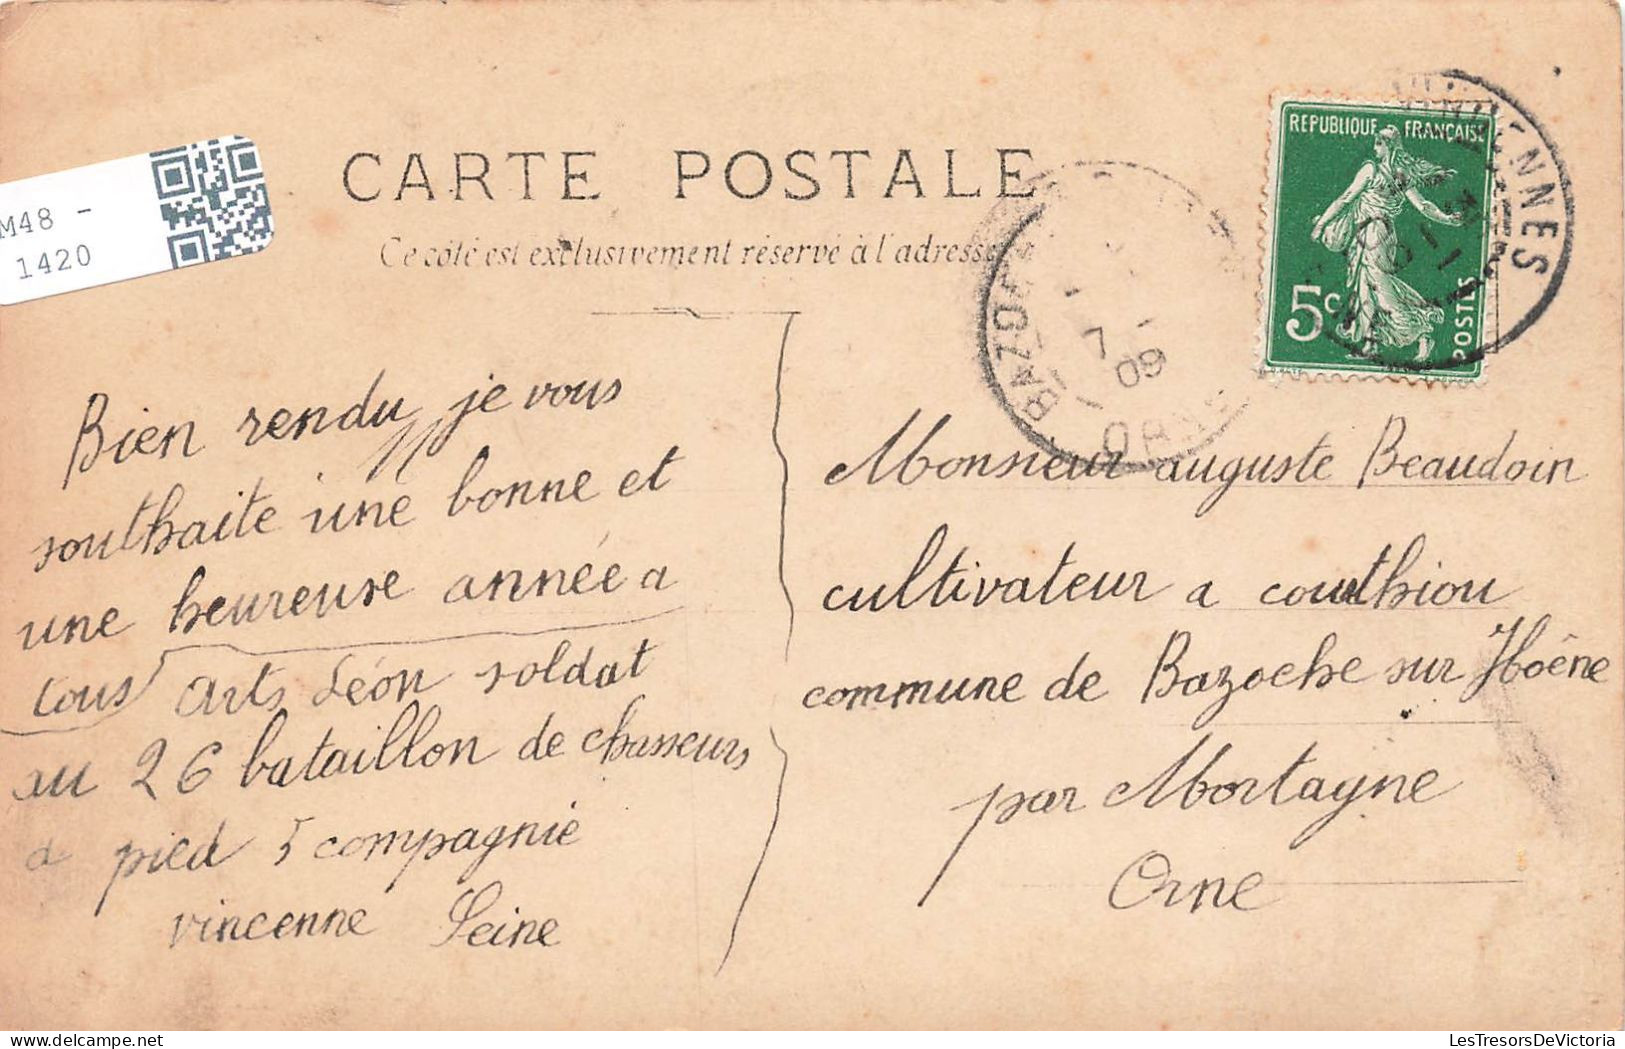 CARTE POSTALE
Ce côté est exclusivement réservé à l'adresse
M48 -
1420
REPUBLIQUE FRANÇAISE
5c
POSTES
BAZOC
7
09
ORNE
Bien rendu, je vous
southaite une bonne et
une heureuse année a
tous arts Léon soldat
au 26 bataillon de chasseurs
a pied 5 compagnie
vincenne Seine
Monsieur auguste Beaudoin
cultivateur a courthiou
commune de Bazoche sur Hoêne
par Mortagne
Orne
LesTresorsDeVictoria